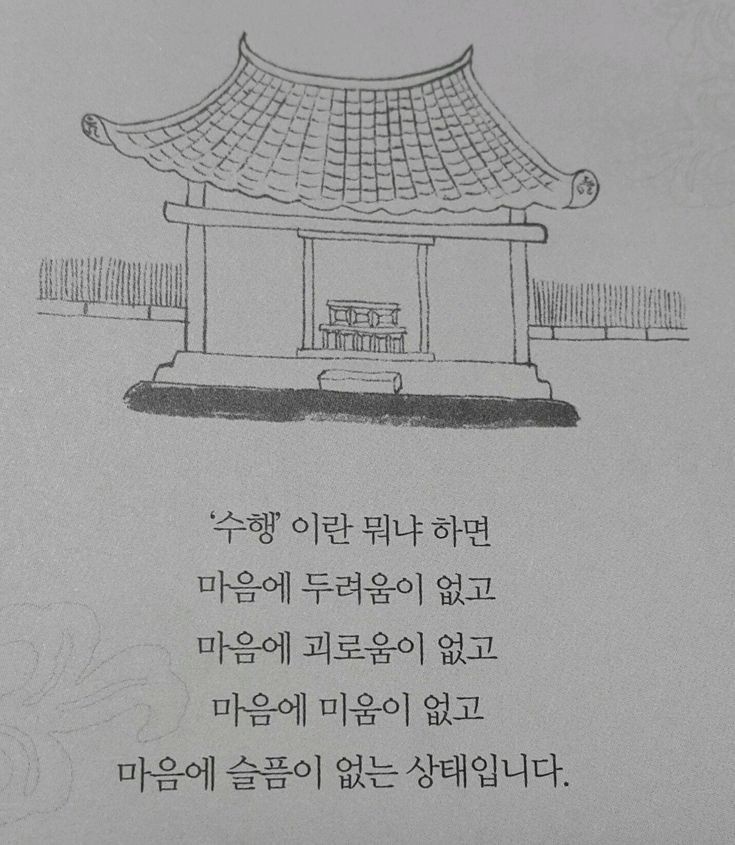 ‘수행’ 이란 뭐냐 하면
마음에 두려움이 없고
마음에 괴로움이 없고
마음에 미움이 없고
마음에 슬픔이 없는 상태입니다.